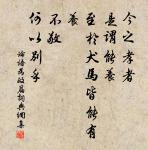 今之孝者
是謂能養
至於犬馬皆能有
養
不敬
何以別乎
論語為政篇詞典網集